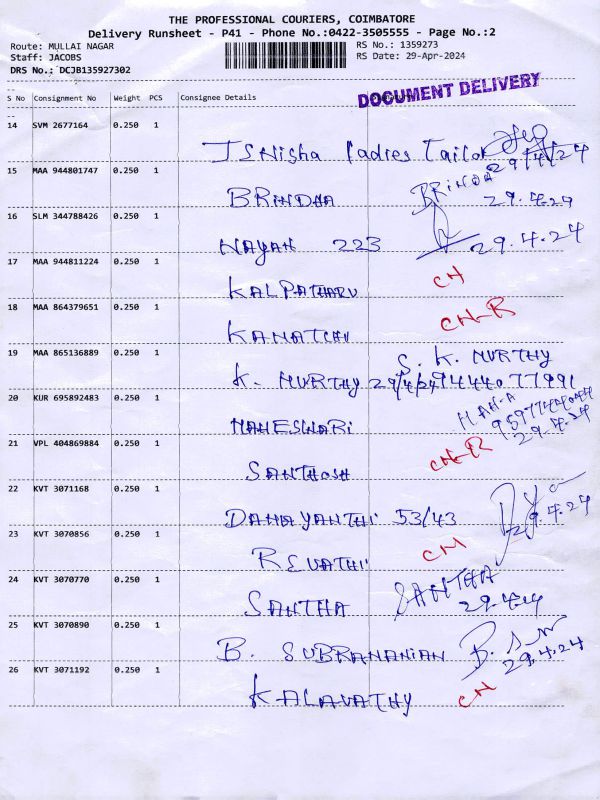 THE PROFESSIONAL COURIERS, COIMBATORE
Delivery Runsheet - P41 - Phone No.:0422-3505555 - Page No.:2
Route: MULLAI NAGAR
RS No.: 1359273
Staff: JACOBS
RS Date: 29-Apr-2024
DRS No.: DCJB135927302
DOCUMENT DELIVERY
S No Consignment No Weight PCS Consignee Details
14 SVM 2677164 0.250 1
Ladies Tailor 29/4/24
15 MAA 944801747 0.250 1
BRINDHA BRINDA 29.4.24
16 SLM 344788426 0.250 1
NAYAN 223 29.4.24
17 MAA 944811224 0.250 1
KALPATHARU CN
18 MAA 864379651 0.250 1
CN-R
19 MAA 865136889 0.250 1
S. K. MURTHY
K. MURTHY 29/4/24 9444077991
20 KUR 695892483 0.250 1
MAHESWARI MAHA 29.4.24
21 VPL 404869884 0.250 1
SANTHOSH CN-R
22 KVT 3071168 0.250 1
DAMAYANTHI 53/43 29.4.24
23 KVT 3070856 0.250 1
REVATHI CN
24 KVT 3070770 0.250 1
SANTHA SANTHA 29.4.24
25 KVT 3070890 0.250 1
B. SUBRAMANIAN 29.4.24
26 KVT 3071192 0.250 1
KALAVATHY CN